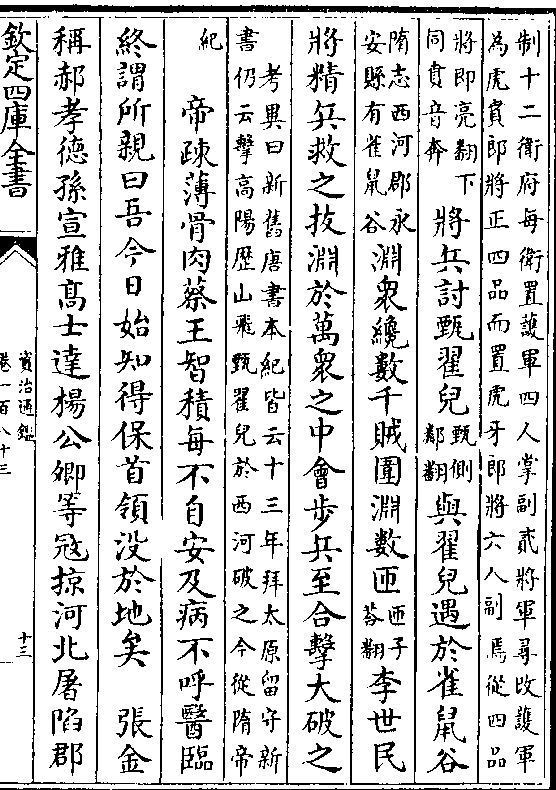 制十二衛府每衛置護軍四人掌副貳將軍尋改護軍
為虎賁郎將正四品而置虎牙郎將六人副焉從四品
將即亮翻下
同賁音奔
將兵討甄翟兒
甄側
鄰翻
與翟兒遇於雀鼠谷
隋志西河郡永
安縣有雀鼠谷
淵衆纔數千賊圍淵數匝
匝子
荅翻
李世民
將精兵救之拔淵於萬衆之中會步兵至合擊大破之
考異曰新舊唐書本紀皆云十三年拜太原留守新
書仍云擊高陽歴山飛甄翟兒於西河破之今從隋帝
紀
帝疎薄骨肉蔡王智積每不自安及病不呼醫臨
終謂所親曰吾今日始知得保首領没於地矣　張金
稱郝孝德孫宣雅髙士達楊公卿等冦掠河北屠陷郡
欽定四庫全書
資治通鑑
卷一百八十三
十三